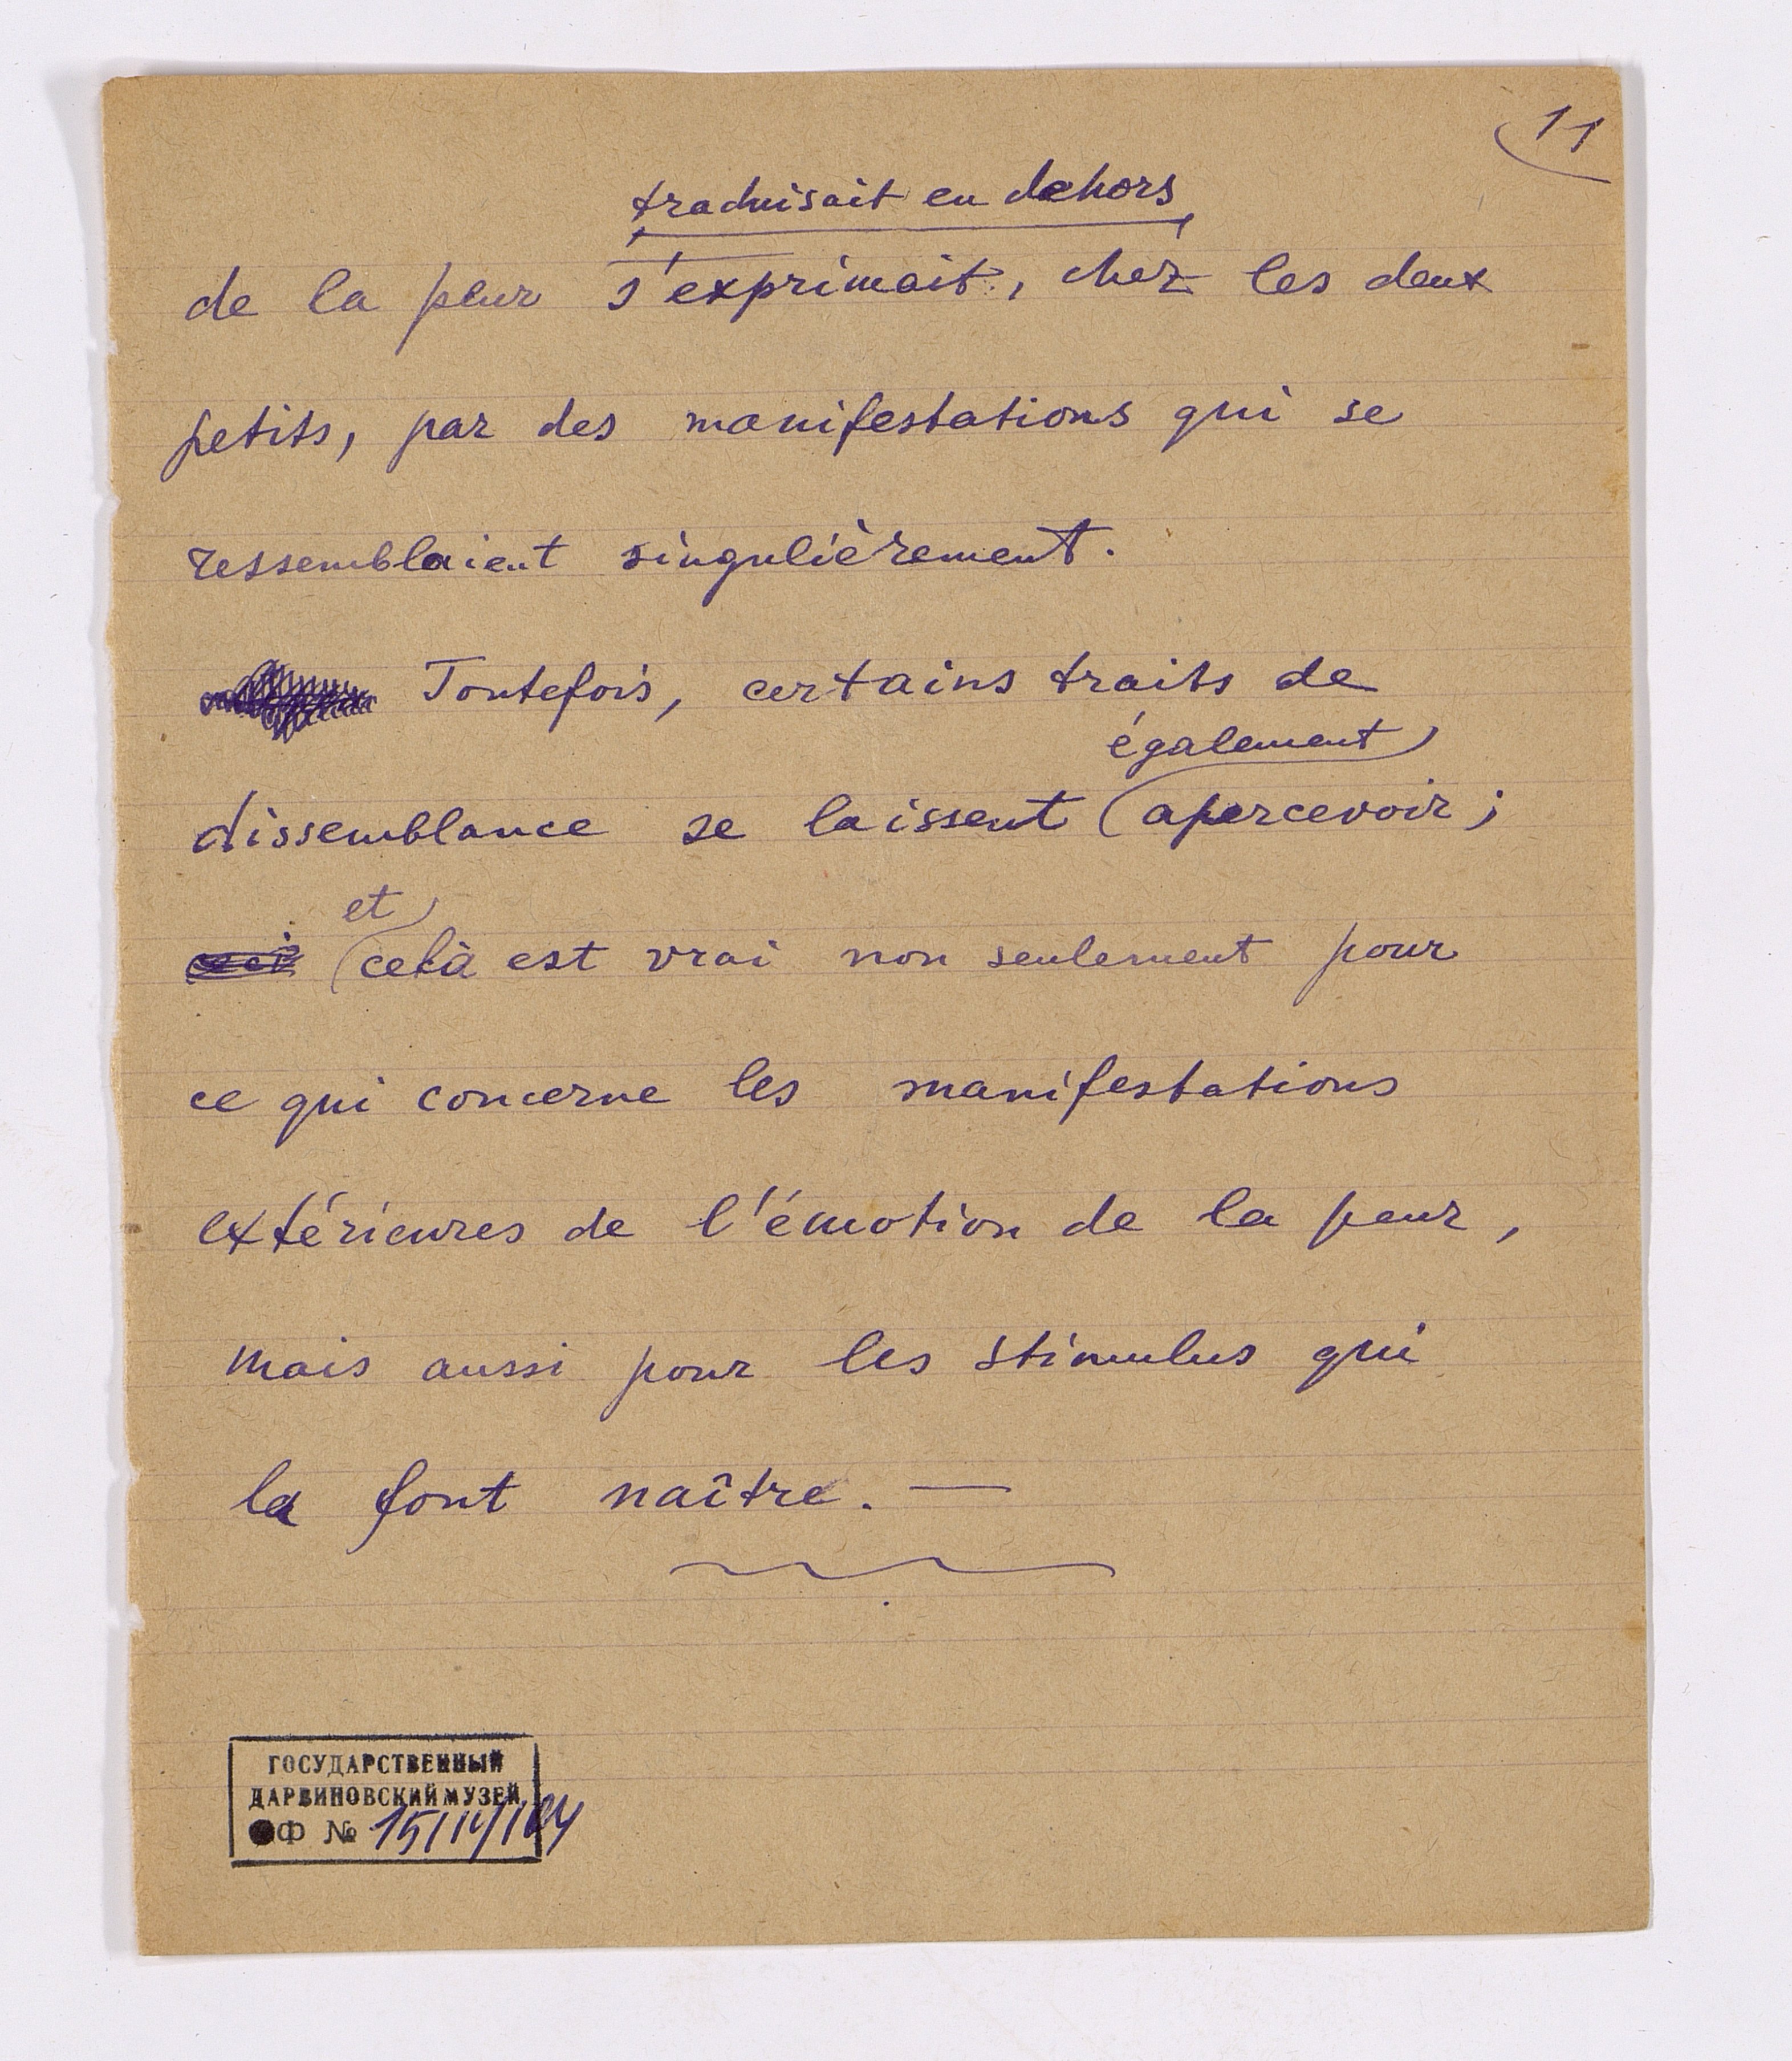 11
traduisait en dehors
de la peur s'exprimait, chez les deux
petits, par des manifestations qui se
ressemblaient singulièrement.
Toutefois, certains traits de
également
dissemblance se laissent apercevoir ;
et
celà est vrai non seulement pour
ce qui concerne les manifestations
extérieures de l'émotion de la peur,
mais aussi pour les stimulus qui
la font naître. —
ГОСУДАРСТВЕННЫЙ
ДАРВИНОВСКИЙ МУЗЕЙ
ОФ №